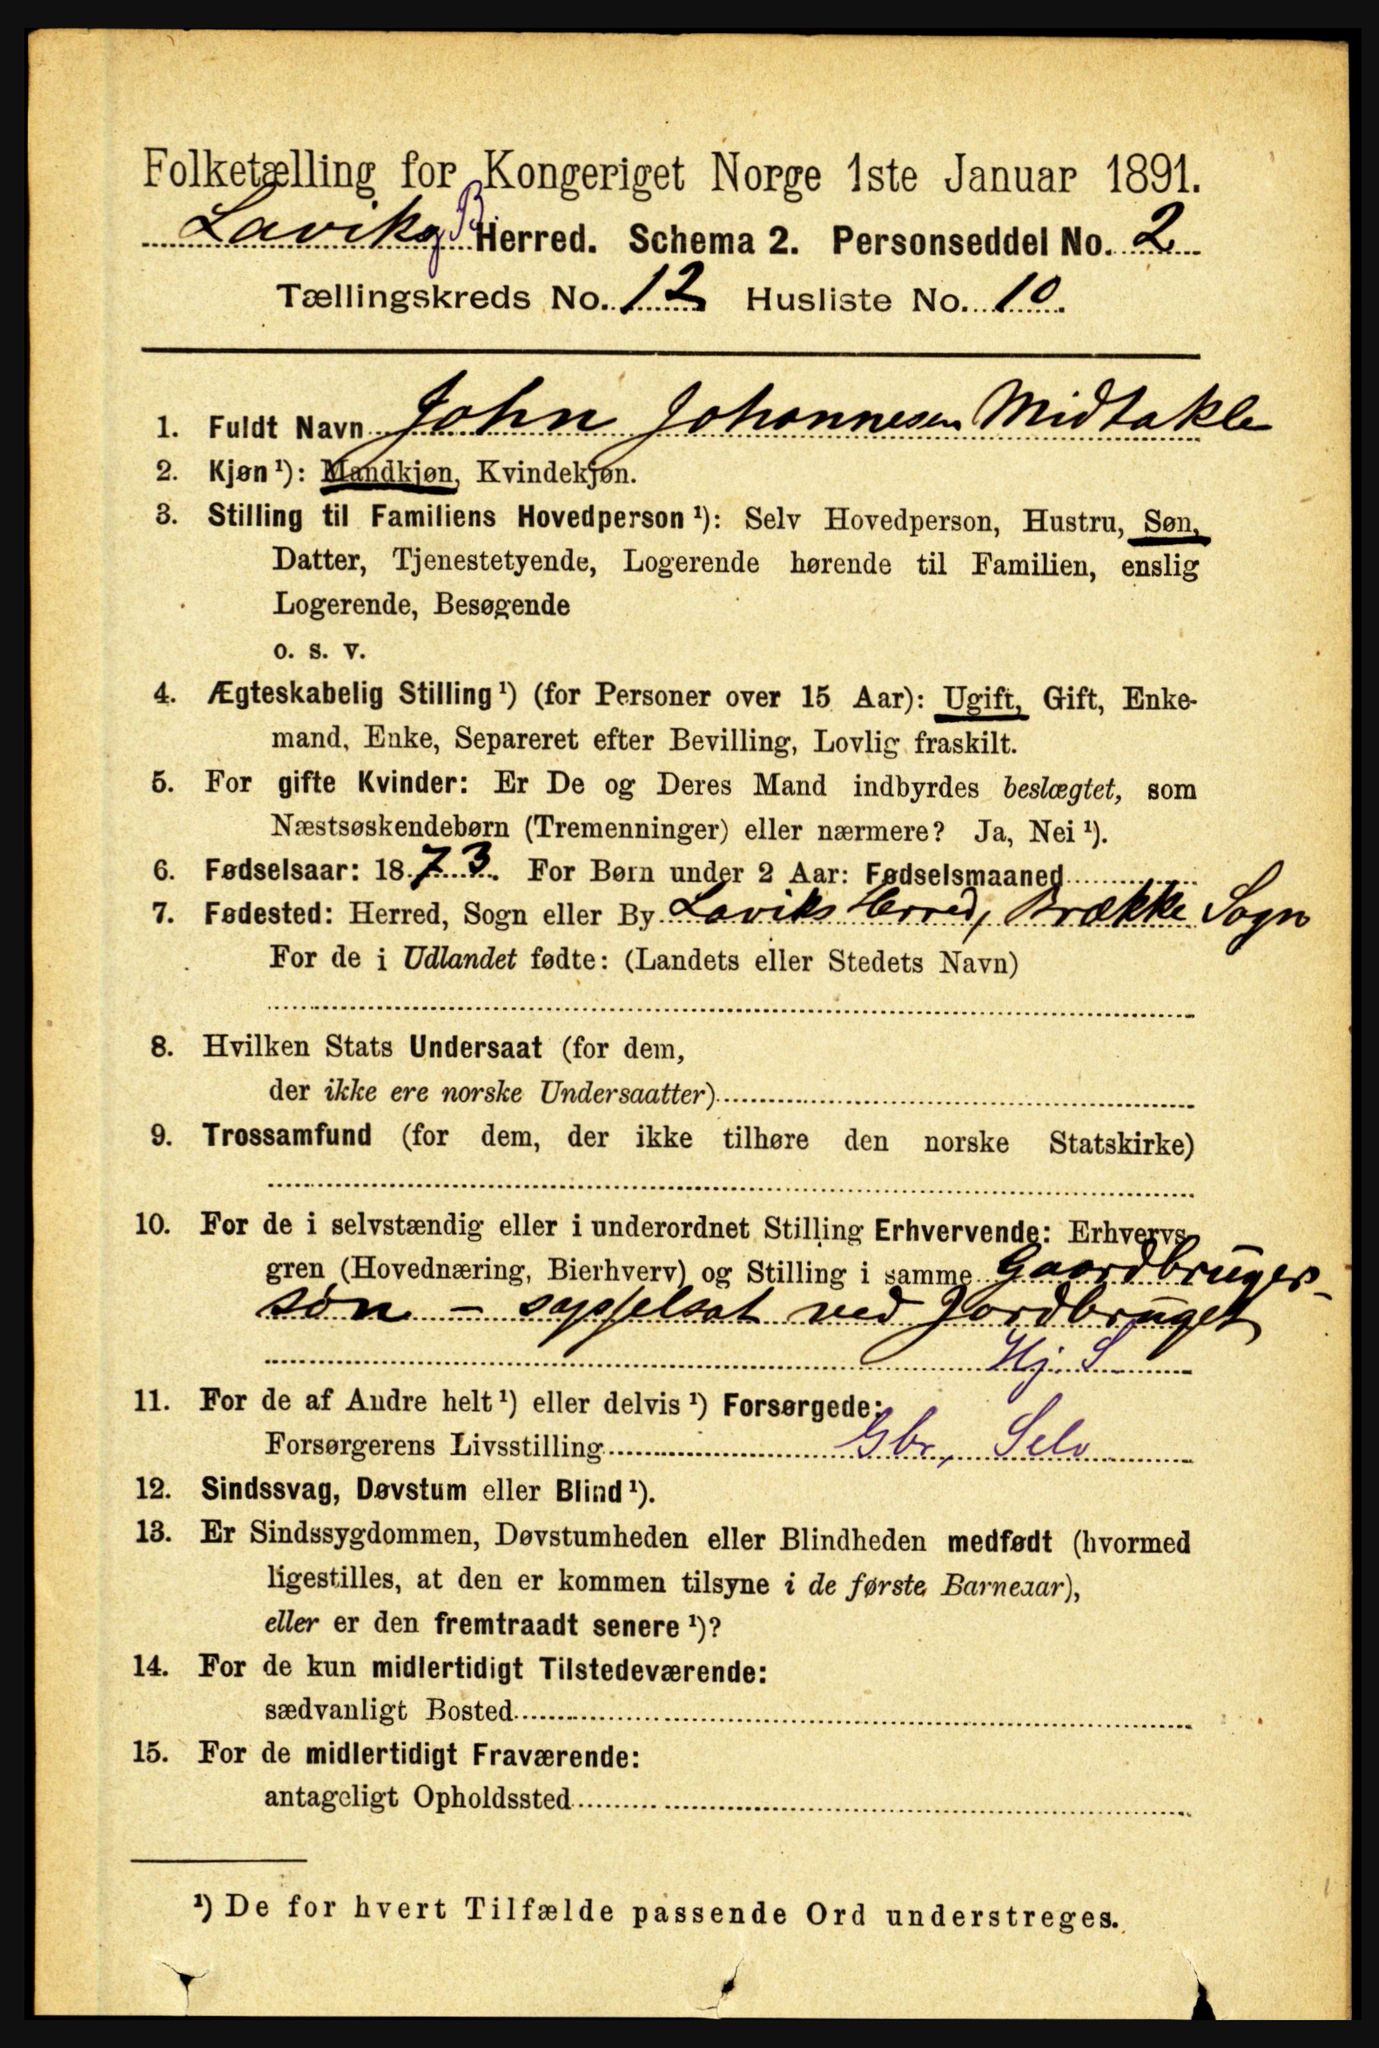 Folketælling for Kongeriget Norge 1ste Januar 1891.
Lavik og B. Herred. Schema 2. Personseddel No. 2
Tællingskreds No. 12 Husliste No. 10.
1. Fuldt Navn John Johannesen Midtakle
2. Kjøn ¹): Mandkjøn, Kvindekjøn.
3. Stilling til Familiens Hovedperson ¹): Selv Hovedperson, Hustru, Søn,
Datter, Tjenestetyende, Logerende hørende til Familien, enslig
Logerende, Besøgende
o. s. v.
4. Ægteskabelig Stilling ¹) (for Personer over 15 Aar): Ugift, Gift, Enke-
mand, Enke, Separeret efter Bevilling, Lovlig fraskilt.
5. For gifte Kvinder: Er De og Deres Mand indbyrdes beslægtet, som
Næstsøskendebørn (Tremenninger) eller nærmere? Ja, Nei ¹).
6. Fødselsaar: 1873. For Børn under 2 Aar: Fødselsmaaned
7. Fødested: Herred, Sogn eller By Laviks Herred, Brække Sogn
For de i Udlandet fødte: (Landets eller Stedets Navn)
8. Hvilken Stats Undersaat (for dem,
der ikke ere norske Undersaatter)
9. Trossamfund (for dem, der ikke tilhøre den norske Statskirke)
10. For de i selvstændig eller i underordnet Stilling Erhvervende: Erhvervs-
gren (Hovednæring, Bierhverv) og Stilling i samme Gaardbruger-
søn - sysselsat ved Jordbruget
Hj. S
11. For de af Andre helt ¹) eller delvis ¹) Forsørgede:
Forsørgerens Livsstilling Gbr, Selv
12. Sindssvag, Døvstum eller Blind ¹).
13. Er Sindssygdommen, Døvstumheden eller Blindheden medfødt (hvormed
ligestilles, at den er kommen tilsyne i de første Barneaar),
eller er den fremtraadt senere ¹)?
14. For de kun midlertidigt Tilstedeværende:
sædvanligt Bosted
15. For de midlertidigt Fraværende:
antageligt Opholdssted
¹) De for hvert Tilfælde passende Ord understreges.